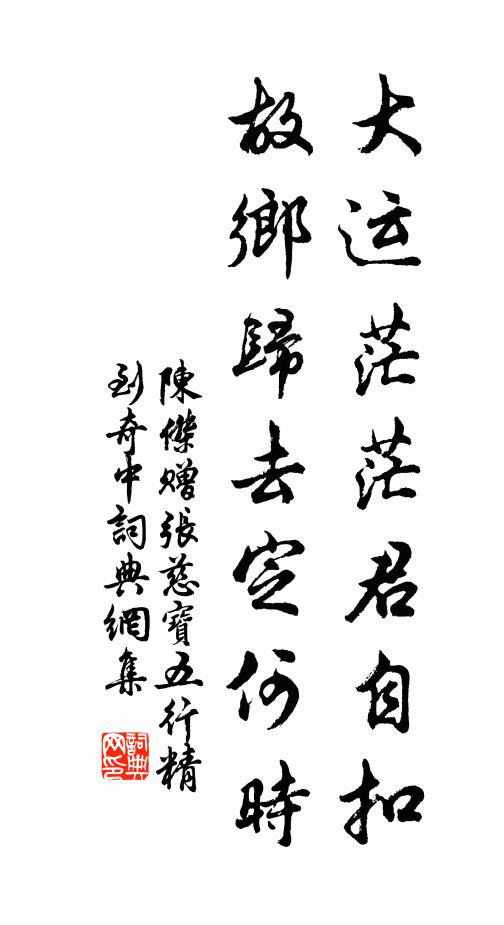 大运茫茫君自扣
故鄉歸去定何時
陳傑贈張慈寶五行精
到奇中詞典網集
詞典
网印